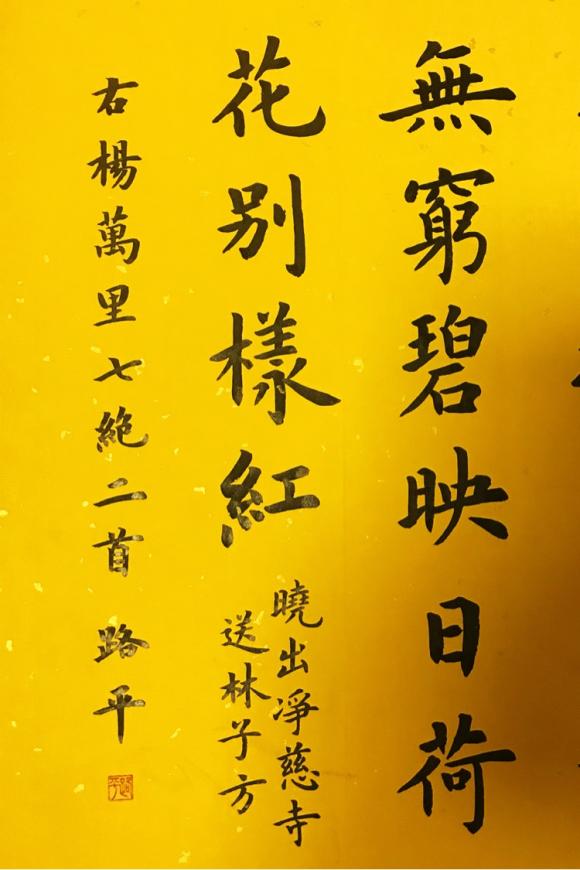 無窮碧映日荷
花別樣紅
曉出淨慈寺
送林子方
右楊萬里七絕二首 路平